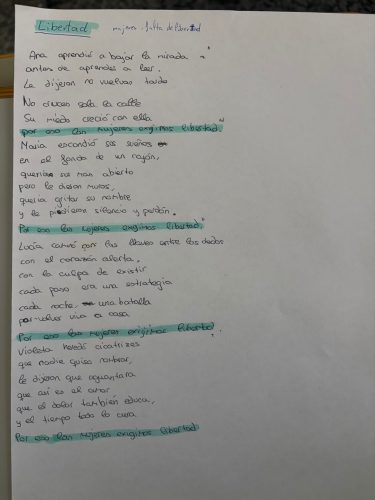 Libertad
mujeres: falta de libertad
Ana aprendió a bajar la mirada
antes de aprender a leer.
Le dijeron no vuelvas tarde
No cruces sola la calle
Su miedo creció con ella
por eso las mujeres exigimos libertad.
Maria escondió sus sueños
en el fondo de un cajón,
quería mar abierto
pero le dieron muros,
quería gritar su nombre
y le pidieron silencio y perdón.
Por eso las mujeres exigimos libertad.
Lucía caminó con las llaves entre los dedos
con el corazón alerta.
con la culpa de existir
cada paso era una estrategia
cada noche una batalla
por volver viva a casa
Por eso las mujeres exigimos libertad
Violeta heredó cicatrizes
que nadie quiso nombrar,
le dijeron que aguantara
que así es el amor
que el dolor también educa,
y el tiempo todo lo cura.
Por eso las mujeres exigimos libertad